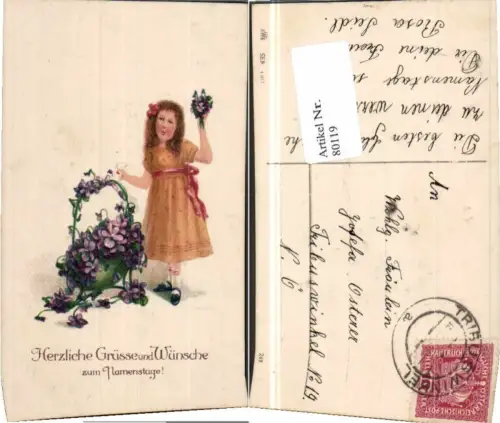 Herzliche Grüsse und Wünsche
zum Namenstage!
Artikel Nr.
80119
Die besten
zu deinem
Namenstage
Dir deine
Rosa Seidl.
An
Wohlg. Fräulein
Josefa Osterer
Tribuswinkel No 19.
N. Ö
TRIBUSWINKEL